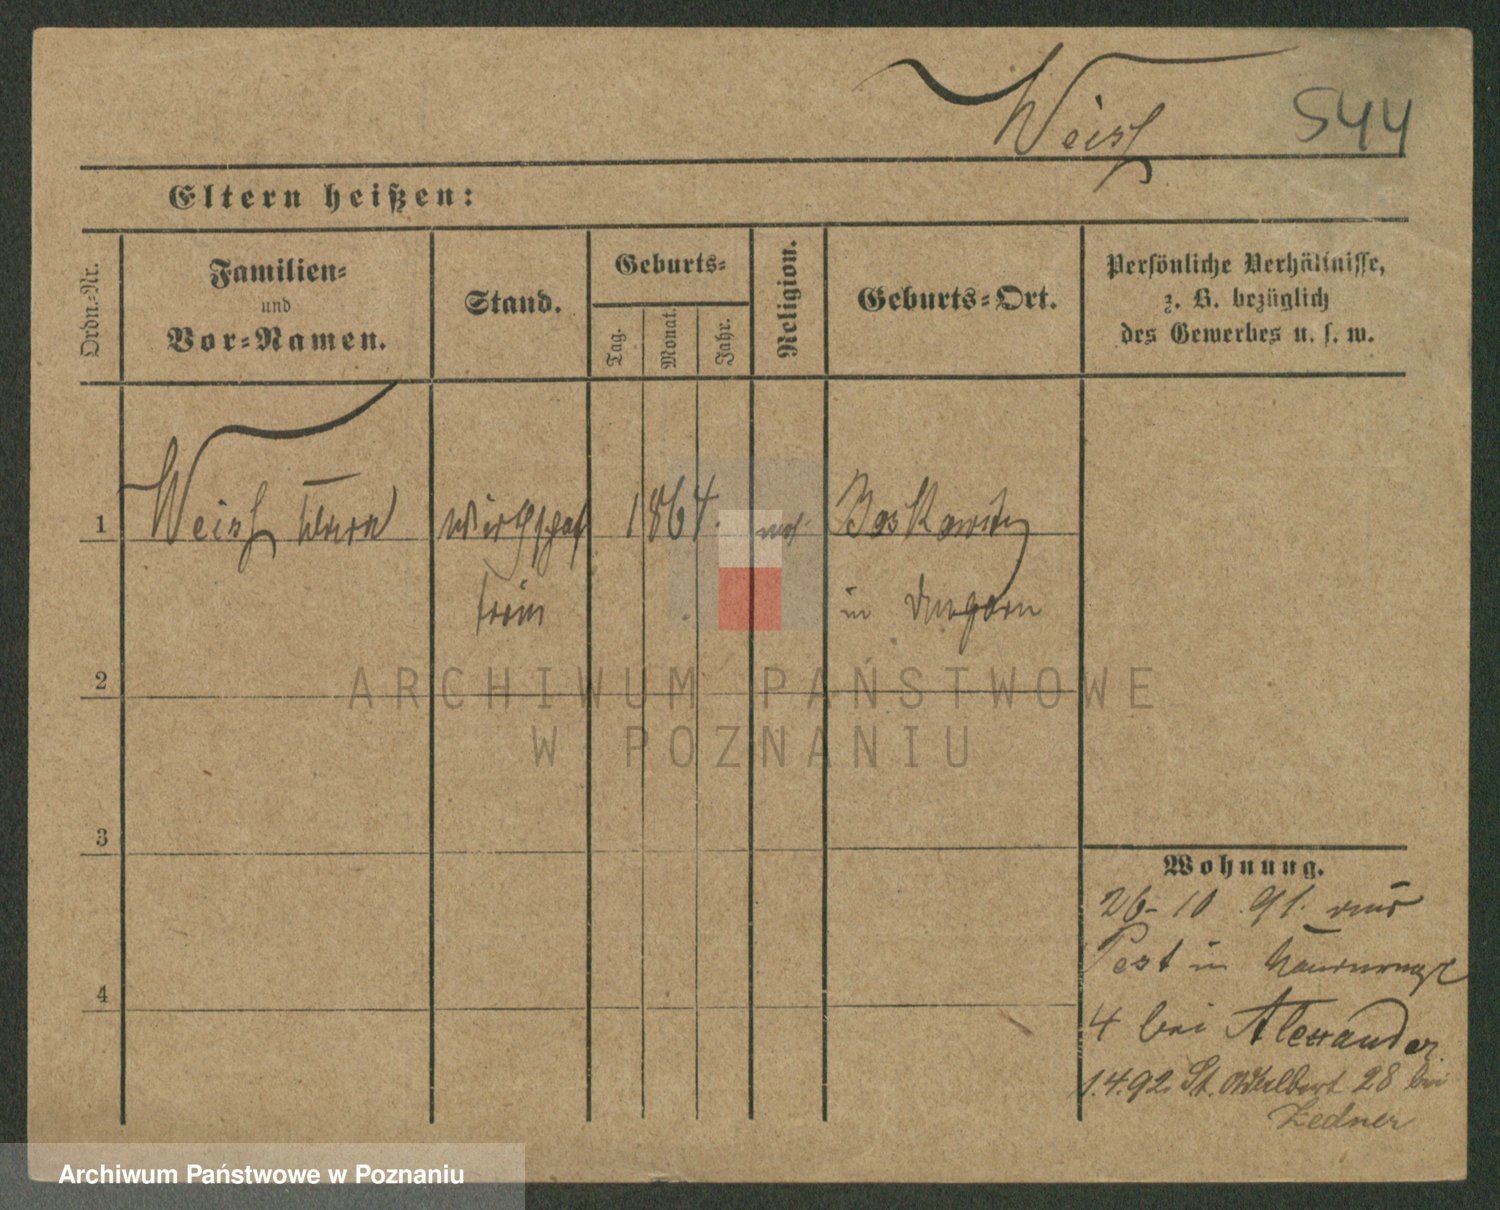 Weiss 544
Eltern heißen:
Ordn.-Nr.
Familien-
und
Vor-Namen.
Stand.
Geburts-
Tag.
Monat.
Jahr.
Religion.
Geburts-Ort.
Persönliche Verhältnisse,
z. B. bezüglich
des Gewerbes u. s. w.
1 Weiss wirthschaf 1864. Boskowitz
terin in Ungarn
2
ARCHIWUM PAŃSTWOWE
W POZNANIU
3
Wohnung.
26-10 91. aus
Pest in
4
4 bei Alexander
1.4.92. St. Adalbert 28 bei
Zedner
Archiwum Państwowe w Poznaniu